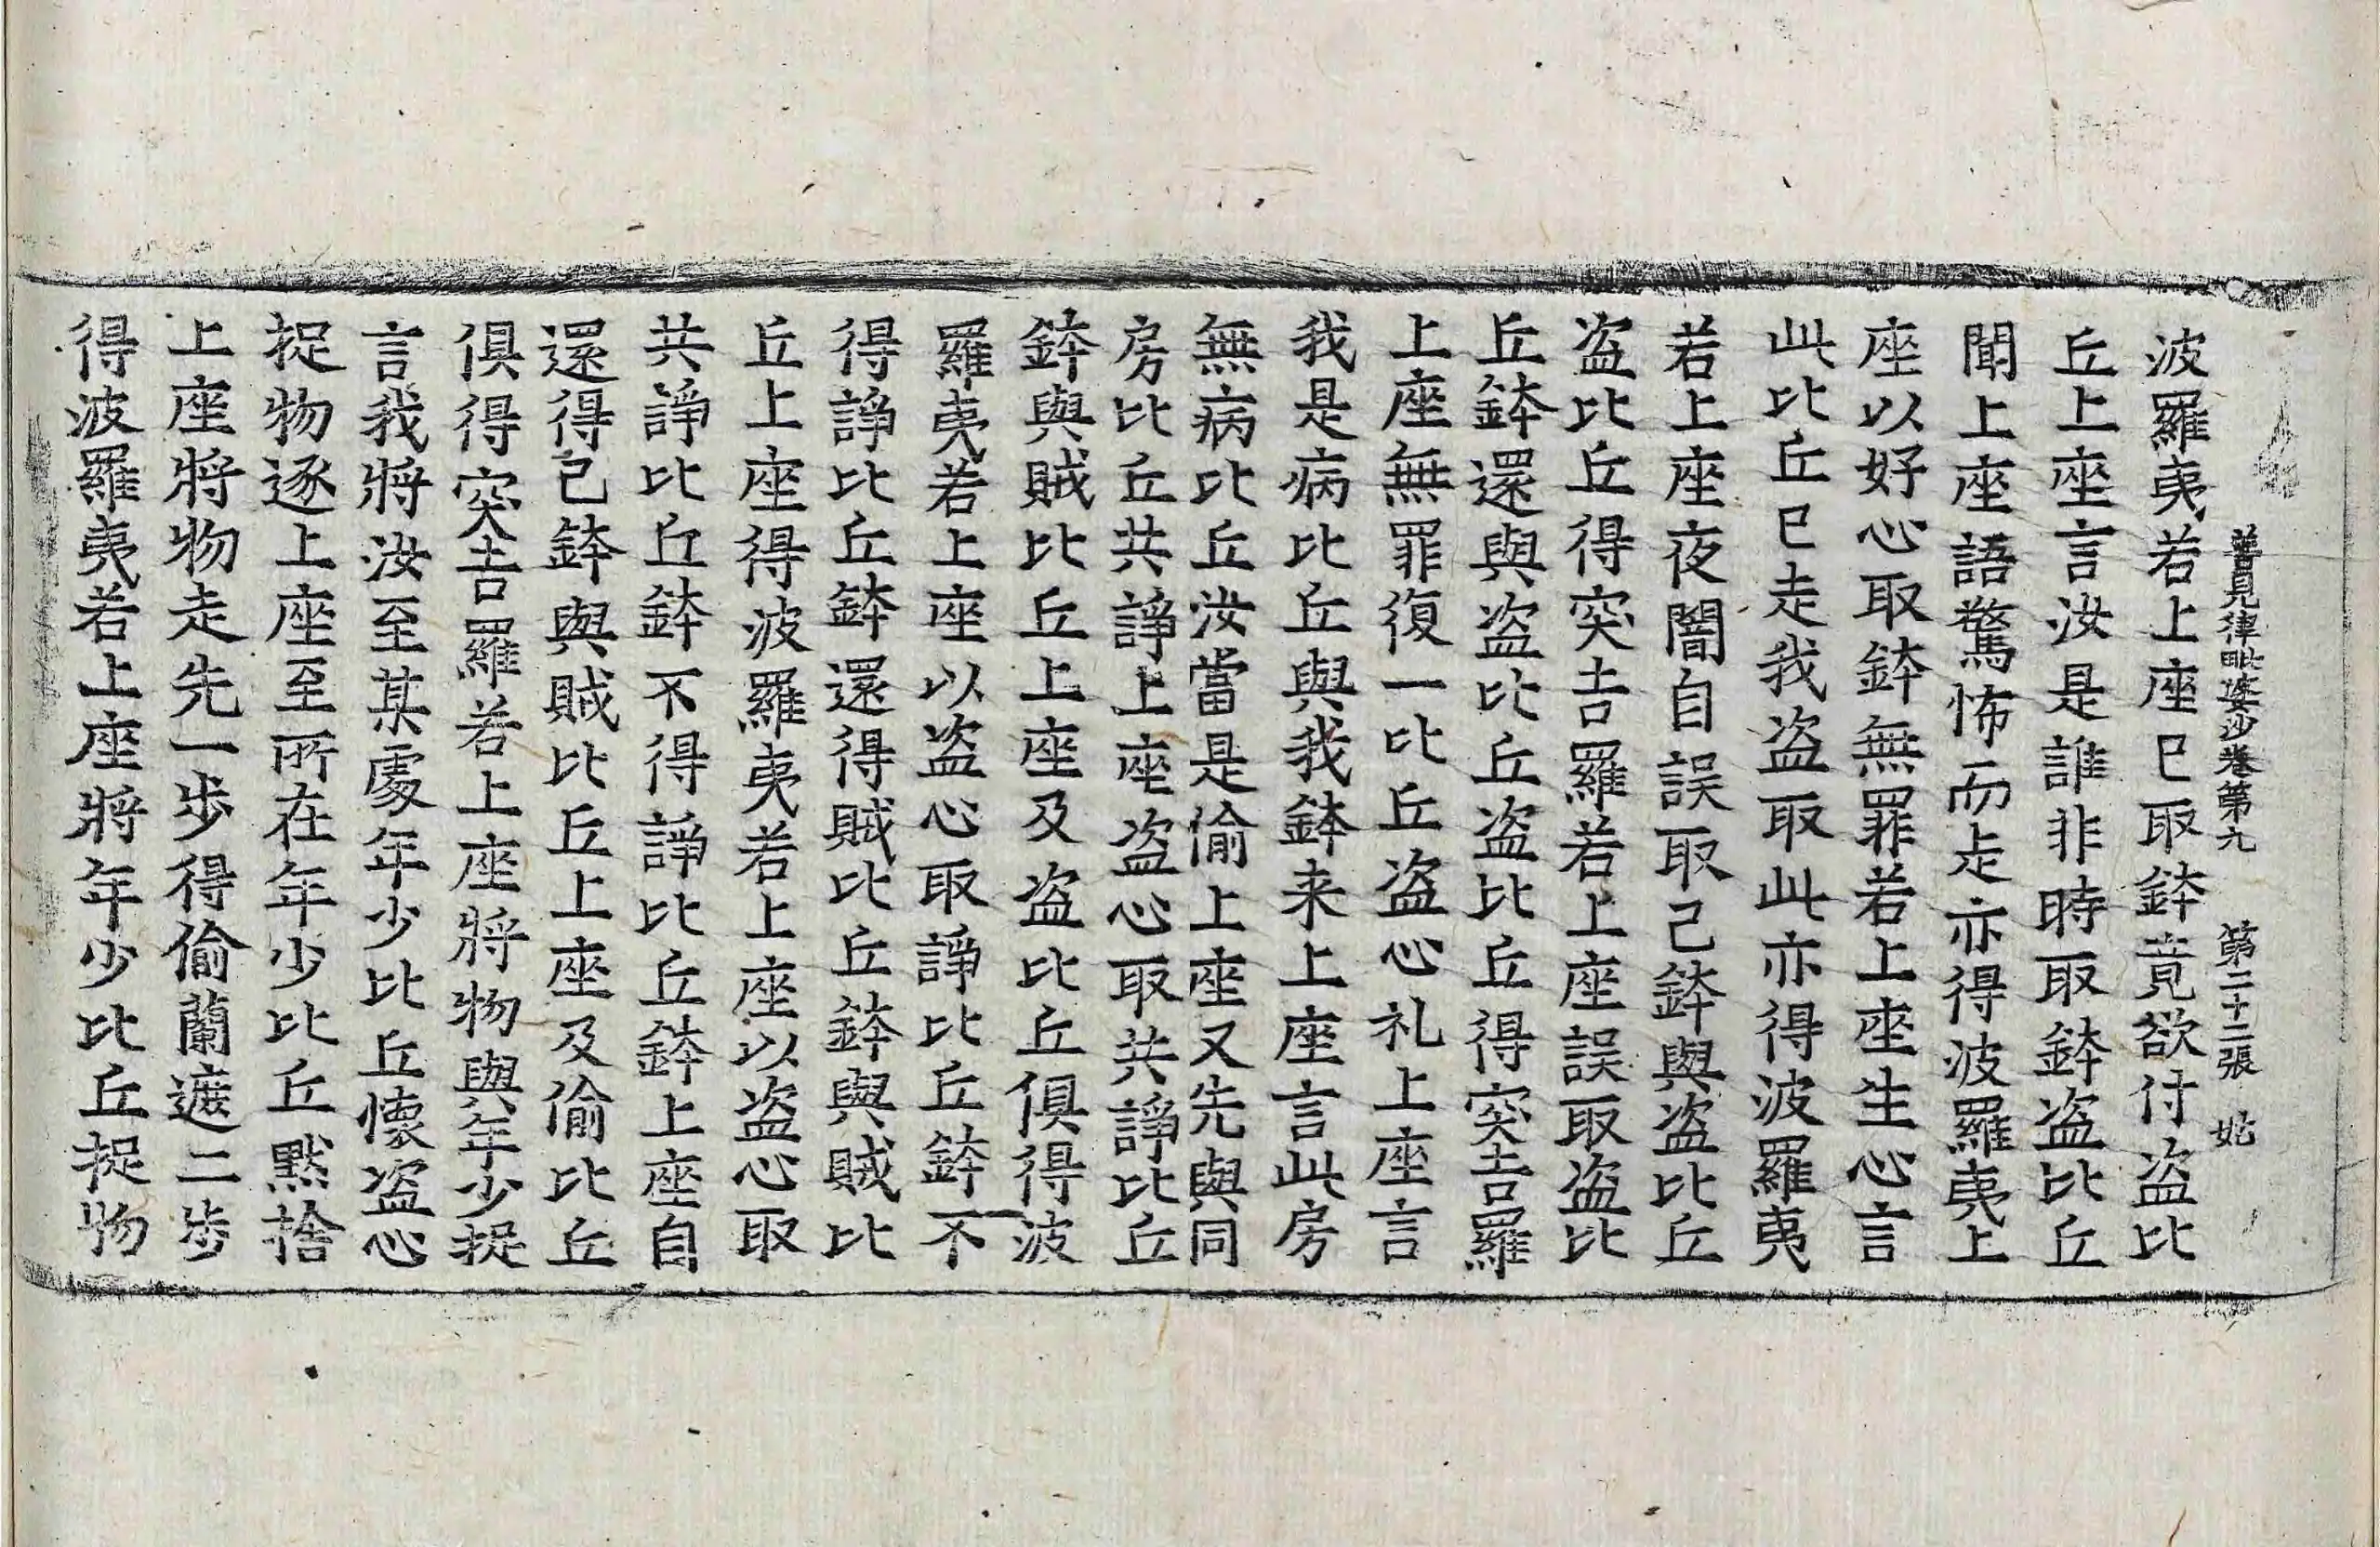 善見律毗婆沙卷第九　第二十二張　妣
波羅夷若上座已取鉢竟欲付盗比
丘上座言汝是誰非時取鉢盗比丘
聞上座語驚怖而走亦得波羅夷上
座以好心取鉢無罪若上座生心言
此比丘已走我盗取此亦得波羅夷
若上座夜闇自誤取己鉢與盗比丘
盗比丘得突吉羅若上座誤取盗比
丘鉢還與盗比丘盗比丘得突吉羅
上座無罪復一比丘盗心礼上座言
我是病比丘與我鉢来上座言此房
無病比丘汝當是偷上座又先與同
房比丘共諍上座盗心取共諍比丘
鉢與賊比丘上座及盗比丘俱得波
羅夷若上座以盗心取諍比丘鉢不
得諍比丘鉢還得賊比丘鉢與賊比
丘上座得波羅夷若上座以盗心取
共諍比丘鉢不得諍比丘鉢上座自
還得己鉢與賊比丘上座及偷比丘
俱得突吉羅若上座將物與年少捉
言我將汝至某處年少比丘懷盗心
捉物逐上座至所在年少比丘默捨
上座將物走先一步得偷蘭遮二步
得波羅夷若上座將年少比丘捉物